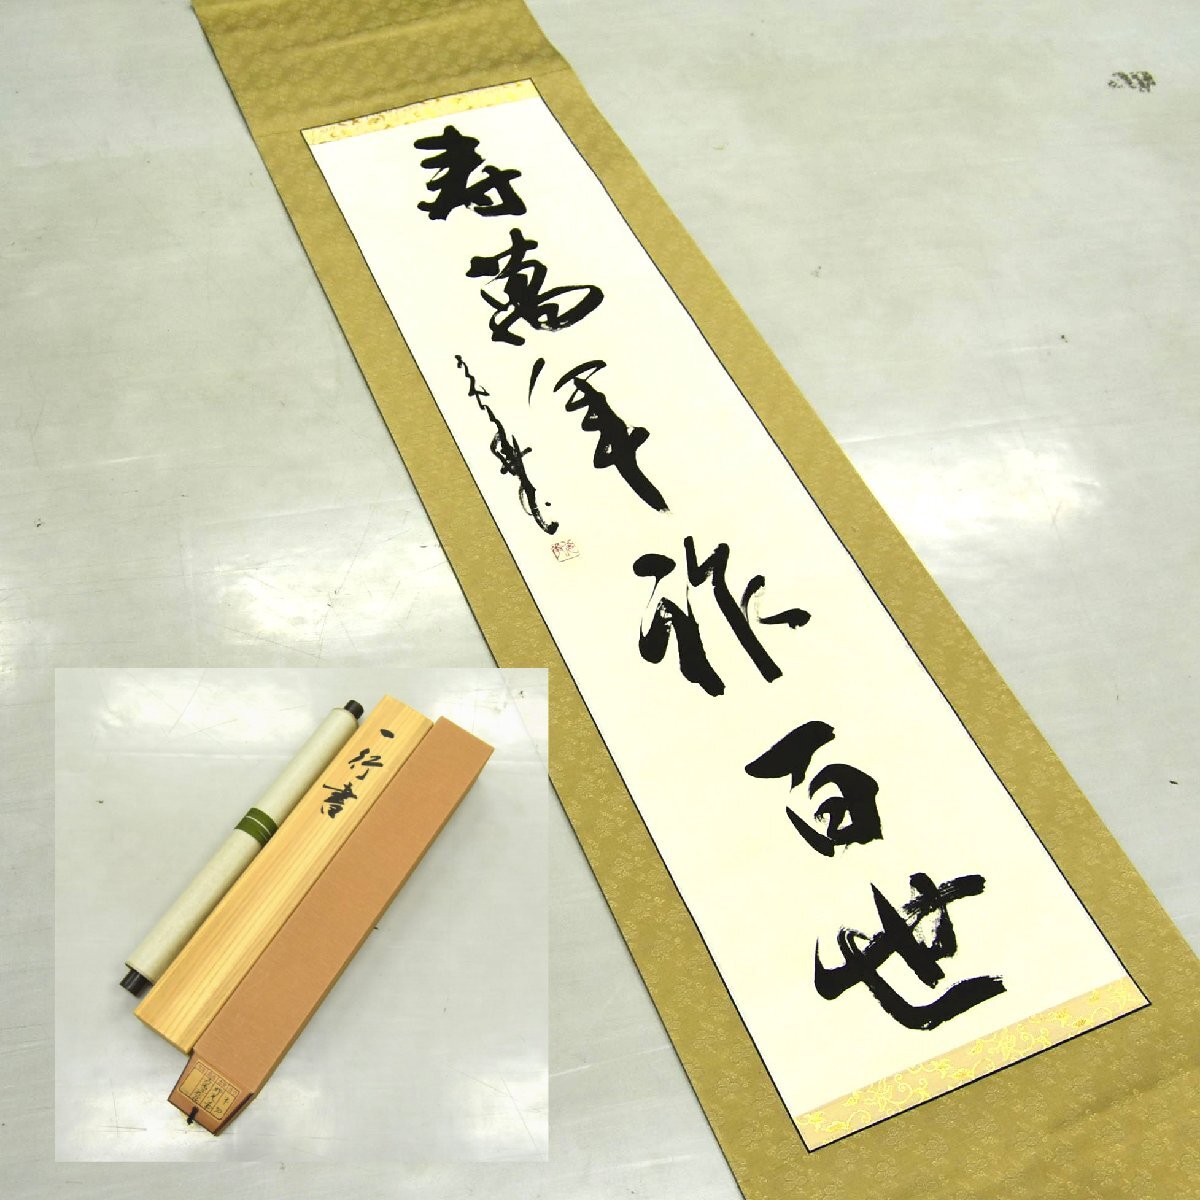 寿萬年祚百世
一行書